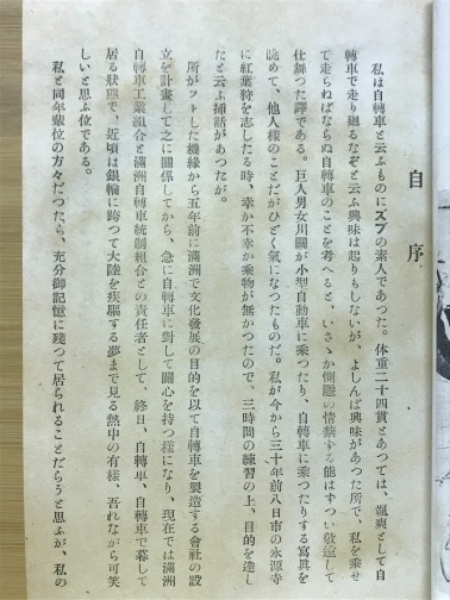 自序
私は自轉車と云ふものにズブの素人であつた。体重二十四貫とあつては、颯爽として自
轉車で走り廻るなぞと云ふ興味は起りもしないが、よしんば興味があつた所で、私を乘せ
て走らねばならぬ自轉車のことを考へると、いさゝか惻隱の情禁ずる能はずつい敬遠して
仕舞つた譯である。巨人男女川關が小型自動車に乘つたり、自轉車に乘つたりする寫眞を
眺めて、他人樣のことだがひどく氣になつたものだ。私が今から三十年前八日市の永源寺
に紅葉狩を志したる時、幸か不幸か乘物が無かつたので、三時間の練習の上、目的を達し
たと云ふ揷話があつたが。
所がフトした機緣から五年前に滿洲で文化發展の目的を以て自轉車を製造する會社の設
立を計畫して之に關係してから、急に自轉車に對して關心を持つ樣になり、現在では滿洲
自轉車工業組合と滿洲自轉車統制組合との責任者として、終日、自轉車、自轉車で暮して
居る狀態で、近頃は銀輪に跨つて大陸を疾驅する夢まで見る熱中の有樣、吾れながら可笑
しいと思ふ位である。
私と同年輩位の方々だつたら、充分御記憶に殘つて居られることだらうと思ふが、私の